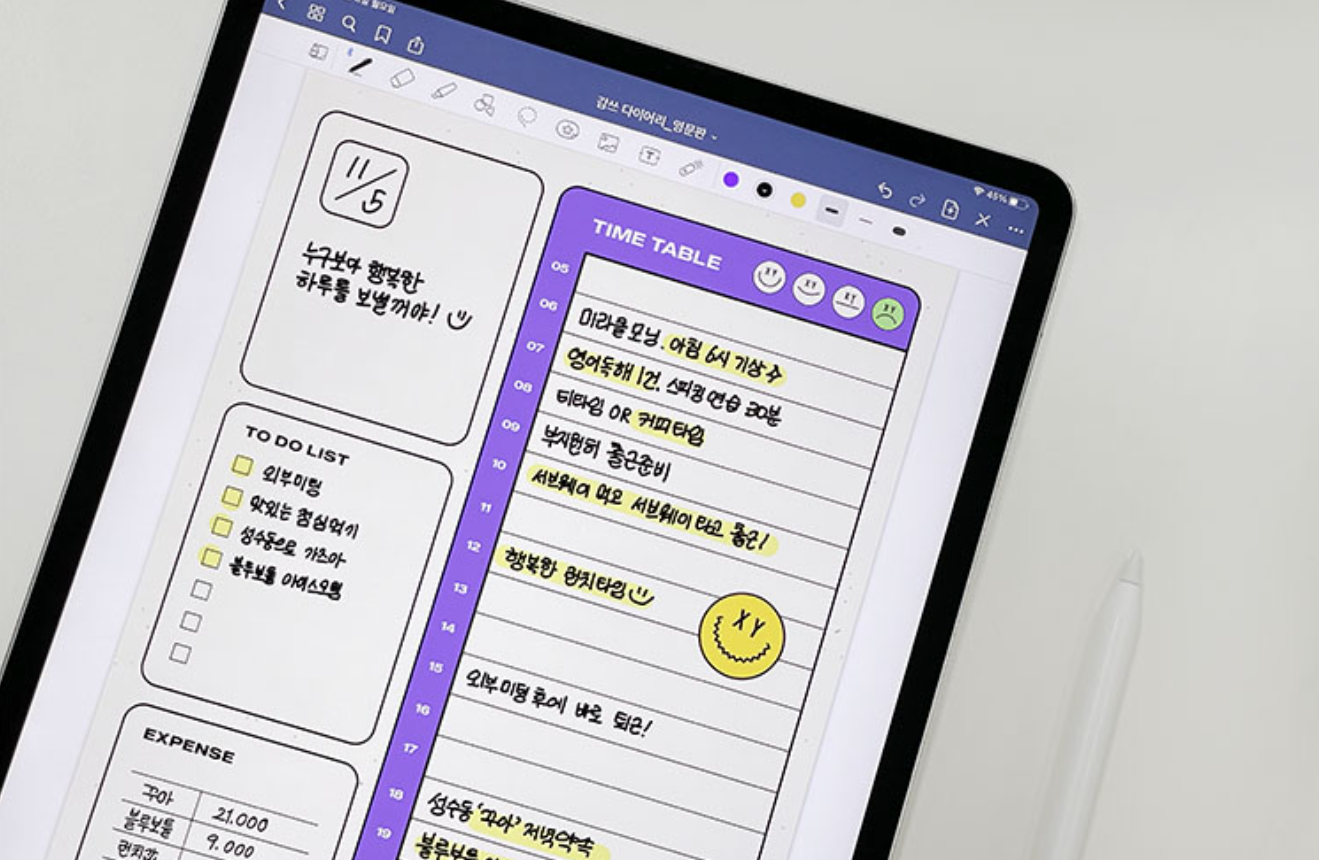 월요일
감쓰 다이어리_영문판
45%
11/5
누구보다 행복한
하루를 보낼꺼야!
TO DO LIST
외부미팅
맛있는 점심먹기
성수동으로 가즈아
블루보틀 아이스오렌
EXPENSE
꾸아 21.000
블루보틀 9.000
런치
TIME TABLE
05
06 미라클모닝. 아침 6시 기상
07 영어독해 1건. 스피킹 연습 30분
08 티타임 OR 커피타임
09 부지런히 출근준비
10 서브웨이 먹고 서브웨이 타고 출근!
11
12 행복한 런치타임
13
14
15 외부미팅 후에 바로 퇴근!
16
17
18 성수동 '꾸아' 저녁약속
19 블루보틀
XY